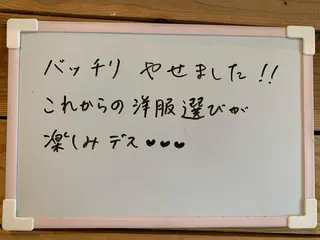 バッチリ やせました!!
これからの洋服選びが
楽しみデス♥♥♥